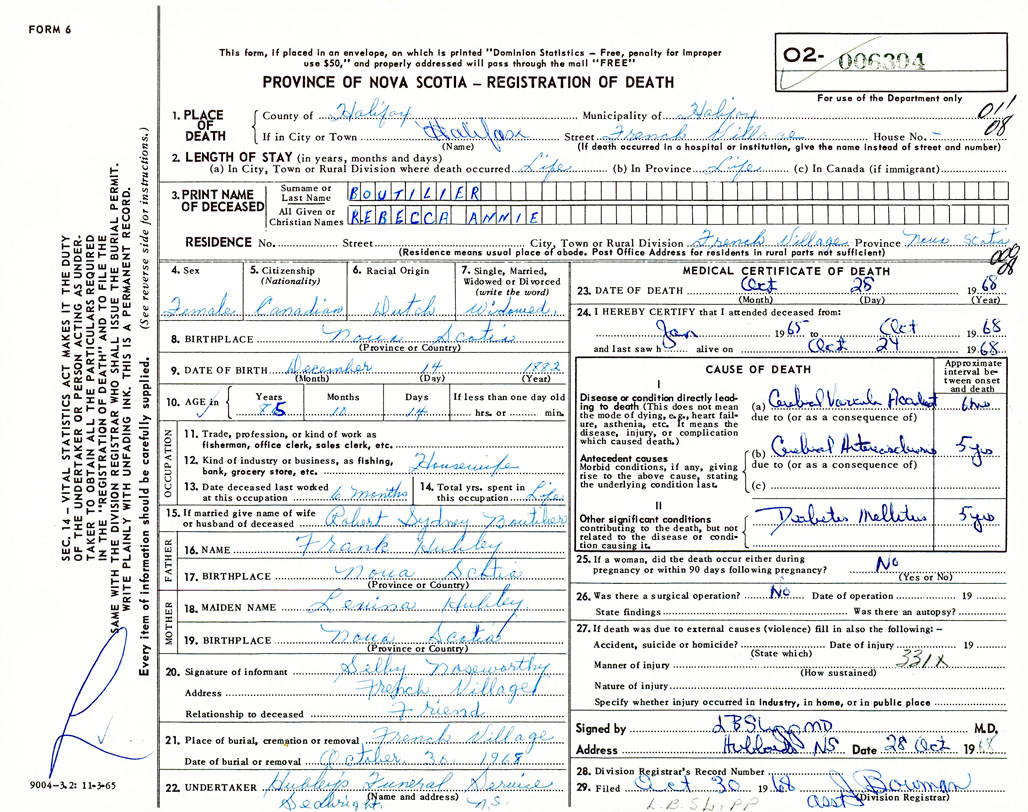 FORM 6
This form, if placed in an envelope, on which is printed "Dominion Statistics – Free, penalty for improper
use $50," and properly addressed will pass through the mail "FREE"
PROVINCE OF NOVA SCOTIA – REGISTRATION OF DEATH
O2- 006304
For use of the Department only
011
08
1. PLACE OF DEATH
County of Halifax Municipality of Halifax
If in City or Town Halifax Street French Village House No. -
(Name) (If death occurred in a hospital or institution, give the name instead of street and number)
2. LENGTH OF STAY (in years, months and days)
(a) In City, Town or Rural Division where death occurred Life (b) In Province Life (c) In Canada (if immigrant)
3. PRINT NAME OF DECEASED
Surname or Last Name BOUTILIER
All Given or Christian Names REBECCA ANNIE
RESIDENCE No. Street City, Town or Rural Division French Village Province Nova Scotia
(Residence means usual place of abode. Post Office Address for residents in rural parts not sufficient)
009
08
4. Sex
Female
5. Citizenship
(Nationality)
Canadian
6. Racial Origin
Dutch
7. Single, Married,
Widowed or Divorced
(write the word)
Widowed
8. BIRTHPLACE Nova Scotia
(Province or Country)
9. DATE OF BIRTH December 14 1882
(Month) (Day) (Year)
10. AGE in Years Months Days If less than one day old
85 10 14 hrs. or min.
OCCUPATION
11. Trade, profession, or kind of work as
fisherman, office clerk, sales clerk, etc.
12. Kind of industry or business, as fishing,
bank, grocery store, etc. Housewife
13. Date deceased last worked
at this occupation 6 months
14. Total yrs. spent in
this occupation Life
15. If married give name of wife
or husband of deceased Robert Sydney Boutilier
FATHER
16. NAME Frank Hubley
17. BIRTHPLACE Nova Scotia
(Province or Country)
MOTHER
18. MAIDEN NAME Levina Hubley
19. BIRTHPLACE Nova Scotia
(Province or Country)
20. Signature of informant Selby Noseworthy
Address French Village
Relationship to deceased Friend
21. Place of burial, cremation or removal French Village
Date of burial or removal October 30 1968
22. UNDERTAKER Hubley's Funeral Service
(Name and address)
N.S.
MEDICAL CERTIFICATE OF DEATH
23. DATE OF DEATH Oct 28 1968
(Month) (Day) (Year)
24. I HEREBY CERTIFY that I attended deceased from:
Jan 1965 to Oct 1968
and last saw h alive on Oct 24 1968
CAUSE OF DEATH
Approximate interval between onset and death
I
Disease or condition directly leading to death (This does not mean the mode of dying, e.g., heart failure, asthenia, etc. It means the disease, injury, or complication which caused death.)
(a) Cerebral Vascular Accident 6 hrs
due to (or as a consequence of)
Antecedent causes
Morbid conditions, if any, giving rise to the above cause, stating the underlying condition last.
(b) Cerebral Arteriosclerosis 5 yrs
due to (or as a consequence of)
(c)
II
Other significant conditions
contributing to the death, but not related to the disease or condition causing it.
Diabetes Mellitus 5 yrs
25. If a woman, did the death occur either during
pregnancy or within 90 days following pregnancy? No
(Yes or No)
26. Was there a surgical operation? No Date of operation 19
State findings Was there an autopsy?
27. If death was due to external causes (violence) fill in also the following: –
Accident, suicide or homicide? Date of injury 19
(State which)
Manner of injury 331X
(How sustained)
Nature of injury
Specify whether injury occurred in Industry, in home, or in public place
Signed by M.D.
Address Hubbards NS Date 28 Oct 1968
28. Division Registrar's Record Number
29. Filed Oct 30 1968 J Bowman
asst (Division Registrar)
9004-3.2: 11-3-65
SEC. 14 – VITAL STATISTICS ACT MAKES IT THE DUTY
OF THE UNDERTAKER OR PERSON ACTING AS UNDER-
TAKER TO OBTAIN ALL THE PARTICULARS REQUIRED
IN THE "REGISTRATION OF DEATH" AND TO FILE THE
SAME WITH THE DIVISION REGISTRAR WHO SHALL ISSUE THE BURIAL PERMIT.
WRITE PLAINLY WITH UNFADING INK. THIS IS A PERMANENT RECORD.
Every item of information should be carefully supplied. (See reverse side for instructions.)